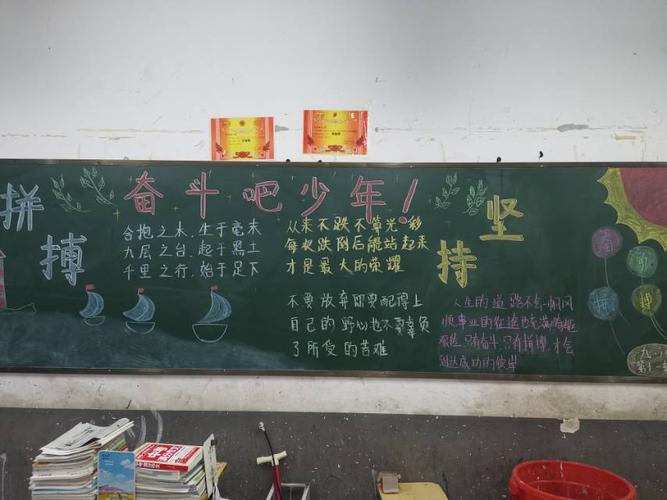 奋斗吧少年!
拼
搏
合抱之木,生于毫末
九层之台,起于累土
千里之行,始于足下
从来不跌不算光彩
每次跌倒后能站起来
才是最大的荣耀
不要放弃即要配得上
自己的野心也不要辜负
了所受的苦难
坚
持
人生的道路不会一帆风
顺事业的征途也充满崎岖
艰险,只有奋斗,只有拼搏,才会
到达成功的彼岸